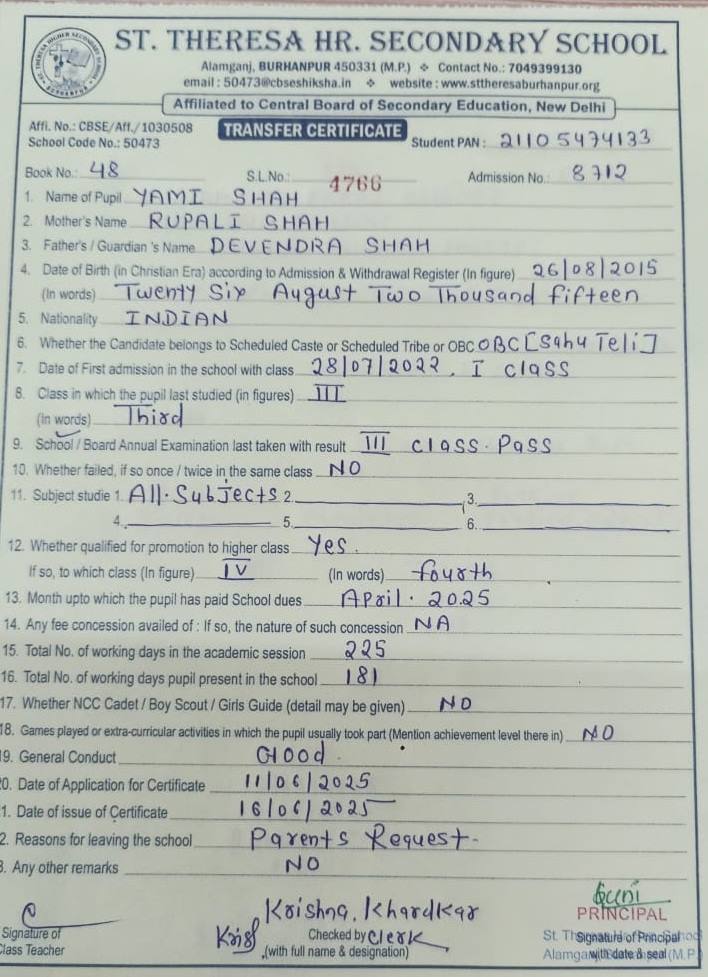 ST. THERESA HR. SECONDARY SCHOOL
Alamganj, BURHANPUR 450331 (M.P.) ❖ Contact No.: 7049399130
email : 50473@cbseshiksha.in ❖ website : www.sttheresaburhanpur.org
Affiliated to Central Board of Secondary Education, New Delhi
Affi. No.: CBSE/Aff./1030508
School Code No.: 50473
TRANSFER CERTIFICATE
Student PAN : 21105474133
Book No.: 48 S.L.No.: 4766 Admission No.: 8712
1. Name of Pupil YAMI SHAH
2. Mother's Name RUPALI SHAH
3. Father's / Guardian 's Name DEVENDRA SHAH
4. Date of Birth (in Christian Era) according to Admission & Withdrawal Register (In figure) 26/08/2015
(In words) Twenty Six August Two Thousand fifteen
5. Nationality INDIAN
6. Whether the Candidate belongs to Scheduled Caste or Scheduled Tribe or OBC OBC [Sahu Teli]
7. Date of First admission in the school with class 28/07/2022. I class
8. Class in which the pupil last studied (in figures) III
(In words) Third
9. School / Board Annual Examination last taken with result III class. Pass
10. Whether failed, if so once / twice in the same class NO
11. Subject studie 1. All. Subjects 2. 3.
4. 5. 6.
12. Whether qualified for promotion to higher class Yes.
If so, to which class (In figure) IV (In words) fourth
13. Month upto which the pupil has paid School dues April. 2025
14. Any fee concession availed of : If so, the nature of such concession NA
15. Total No. of working days in the academic session 225
16. Total No. of working days pupil present in the school 181
17. Whether NCC Cadet / Boy Scout / Girls Guide (detail may be given) NO
18. Games played or extra-curricular activities in which the pupil usually took part (Mention achievement level there in) NO
9. General Conduct Good.
0. Date of Application for Certificate 11/06/2025
1. Date of issue of Certificate 16/06/2025
2. Reasons for leaving the school Parents Request.
3. Any other remarks NO
Krishna. Khardkar
Signature of
Class Teacher
Checked by Clerk
(with full name & designation)
PRINCIPAL
Signature of Principal
with date & seal
St. Th
School
Alamganj
(M.P.